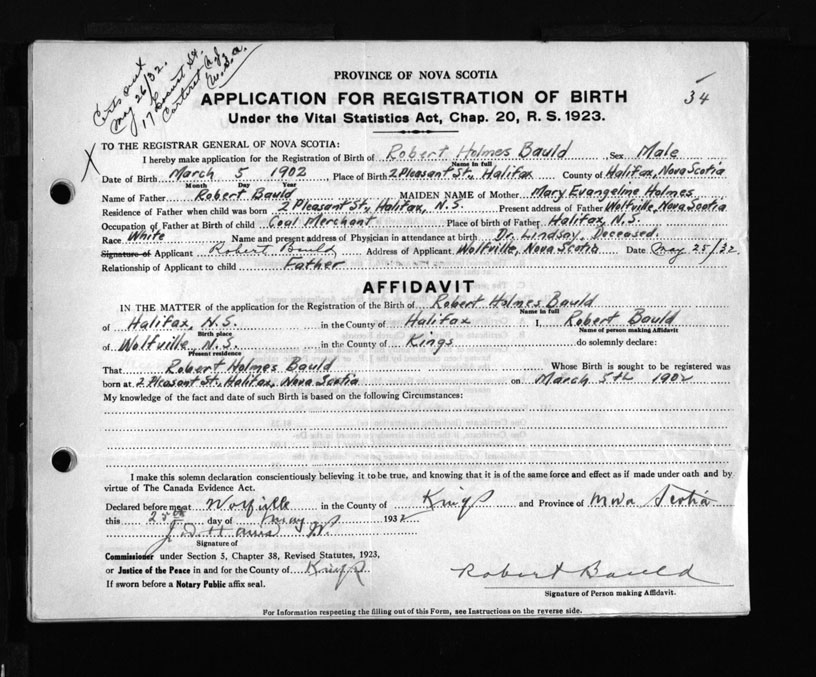 Certs out
May 26/32.
17 August St.
Carteret N.J.
U.S.A.
34
PROVINCE OF NOVA SCOTIA
APPLICATION FOR REGISTRATION OF BIRTH
Under the Vital Statistics Act, Chap. 20, R. S. 1923.
X
TO THE REGISTRAR GENERAL OF NOVA SCOTIA:
I hereby make application for the Registration of Birth of Robert Holmes Bauld Sex Male
Name in full
Date of Birth March 5 1902 Place of Birth 2 Pleasant St., Halifax County of Halifax, Nova Scotia
Month Day Year
Name of Father Robert Bauld MAIDEN NAME of Mother Mary Evangeline Holmes
Residence of Father when child was born 2 Pleasant St., Halifax, N.S. Present address of Father Wolfville, Nova Scotia
Occupation of Father at Birth of child Coal Merchant Place of birth of Father Halifax, N.S.
Race White Name and present address of Physician in attendance at birth Dr. Lindsay, Deceased.
Signature of Applicant Robert Bauld Address of Applicant Wolfville, Nova Scotia Date May 25/32
Relationship of Applicant to child Father
AFFIDAVIT
IN THE MATTER of the application for the Registration of the Birth of Robert Holmes Bauld
Name in full
of Halifax, N.S. in the County of Halifax I, Robert Bauld
Birth place Name of person making Affidavit
of Wolfville N.S. in the County of Kings do solemnly declare:
Present residence
That Robert Holmes Bauld Whose Birth is sought to be registered was
born at 2 Pleasant St., Halifax, Nova Scotia on March 5th 1902
My knowledge of the fact and date of such Birth is based on the following Circumstances:
I make this solemn declaration conscientiously believing it to be true, and knowing that it is of the same force and effect as if made under oath and by
virtue of The Canada Evidence Act.
Declared before me at Wolfville in the County of Kings and Province of Nova Scotia
this 25th day of May 1932
Signature of
Commissioner under Section 5, Chapter 38, Revised Statutes, 1923,
or Justice of the Peace in and for the County of Kings
If sworn before a Notary Public affix seal.
Robert Bauld
Signature of Person making Affidavit.
For Information respecting the filling out of this Form, see Instructions on the reverse side.